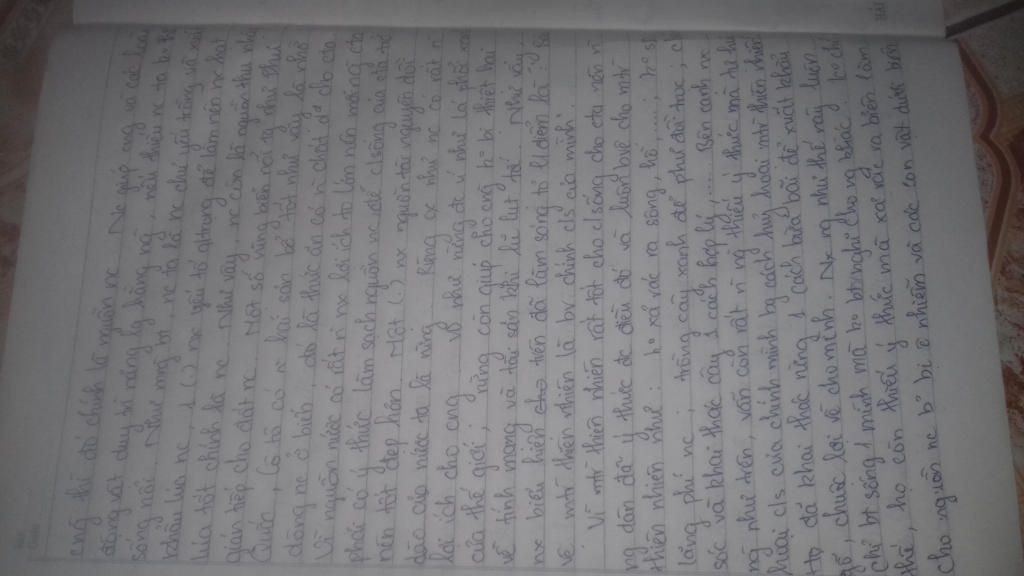 cng thì đó chính là nguồn nc. Nc giúp cng và các loài
động vật duy trì năng lg hằng ng, nếu thiếu nc ta ko thể
sống nổi. Như mọi ng bt, nc ta là nc chủ yếu trồng và xuất
khẩu lúa nc, 1 () nx yếu tố qtrọng để làm nên nx hạt
lúa tốt chính là nc. Như vậy, nc còn là nguồn thu nhập
gián tiếp cho đất nc. Một số vùng biển nổi ng như Phú
Quốc, Cô tô có nx hải sản bổ, tốt như vậy là nhờ
dòng nc ở biển, đó là thức ăn có n chất d² cho cta.
Vì nguồn nước có rất n nx lợi ích to lớn nên mỗi ng cta
phải có ý thức làm sạch nguồn nc, để c/sống của cta trở
nên tốt đẹp hơn. Một () nx nguồn tài nguyên dồi
dào của nước ta là rừng. Rừng cx như nc có rất n
lợi ích cho cng. Vd như rừng đc ví như lá phổi xanh
của thế giới, rừng còn giúp cho cng ko bị thiệt hại
về tính mạng và tài sản khi lũ lụt tới. Như vậy,
nx biểu hiện trên đã làm sáng tỏ q/điểm là: "Bảo
vệ mtr thiên nhiên là bv chính c/s của mình".
Vì mtr thiên nhiên rất tốt cho c/sống cho cta nên n
ng dân đã ý thức đc điều đó và luôn bvệ cho mtr
thiên nhiên như: ko xả rác ra sông, hồ,......, ko sd
lãng phí nc, trồng cây xanh để phủ đồi trọc, ch
sóc và khai thác cây 1 cách hợp lý,...... Bên cạnh nx
ng như trên, vẫn còn rất n ng thiếu ý thức mà tự hủy
hoại c/s của chính mình bg cách hủy hoại mtr thiên nhiên
Họ đã khai thác rừng 1 cách bừa bãi để xuất khẩu
gỗ, chuộc lợi về cho mình. Nx ng như thế này luôn
chỉ bt sống 1 mình mà ko bt nghĩ cho ng khác. Ko chỉ
thế, họ còn thiếu ý thức mà xả rác ra biển làm
cho nguồn nc bị ô nhiễm và các con vật dưới biển